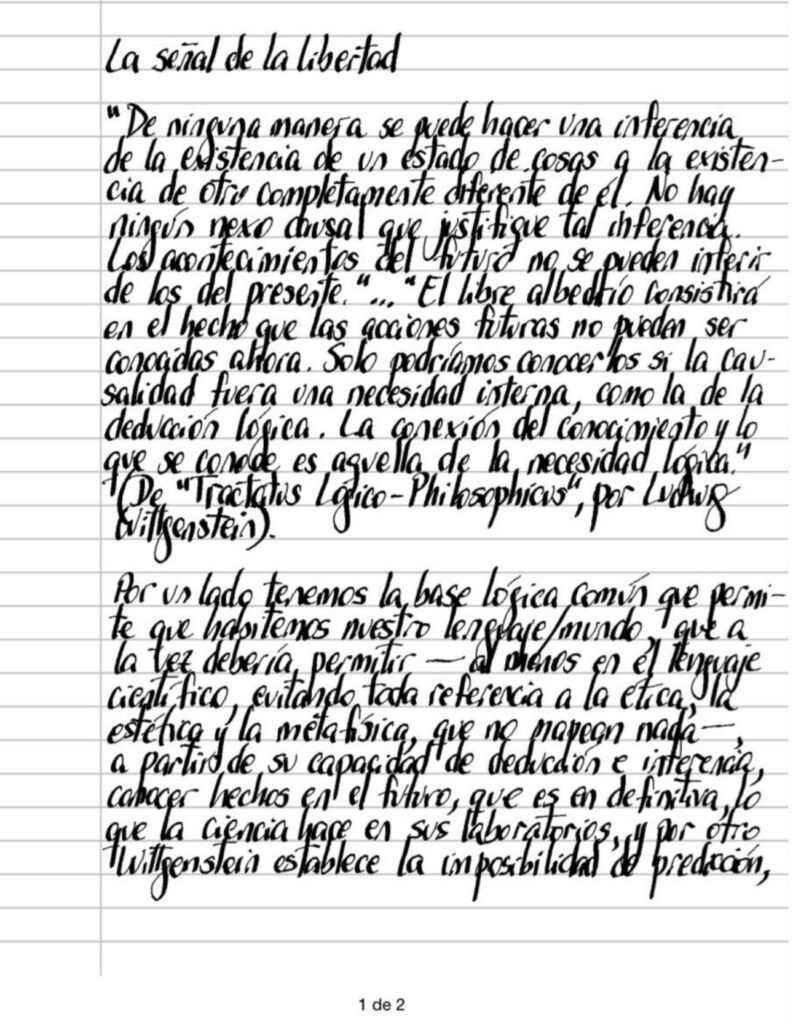 La señal de la libertad
"De ninguna manera se puede hacer una inferencia
de la existencia de un estado de cosas a la existen-
cia de otro completamente diferente de él. No hay
ningún nexo causal que justifique tal inferencia.
Los acontecimientos del futuro no se pueden inferir
de los del presente."..."El libre albedrío consistirá
en el hecho que las acciones futuras no puedan ser
conocidas ahora. Solo podríamos conocerlos si la cau-
salidad fuera una necesidad interna, como la de la
deducción lógica. La conexión del conocimiento y lo
que se conoce es aquella de la necesidad lógica."
(De "Tractatus Lógico-Philosophicus", por Ludwig
Wittgenstein).
Por un lado tenemos la base lógica común que permi-
te que habitemos nuestro lenguaje/mundo, que a
la vez debería permitir — al menos en el lenguaje
científico, evitando toda referencia a la ética, la
estética y la metafísica, que no mapean nada—,
a partir de su capacidad de deducción e inferencia,
conocer hechos en el futuro, que es en definitiva, lo
que la ciencia hace en sus laboratorios, y por otro
Wittgenstein establece la imposibilidad de predicción,
1 de 2